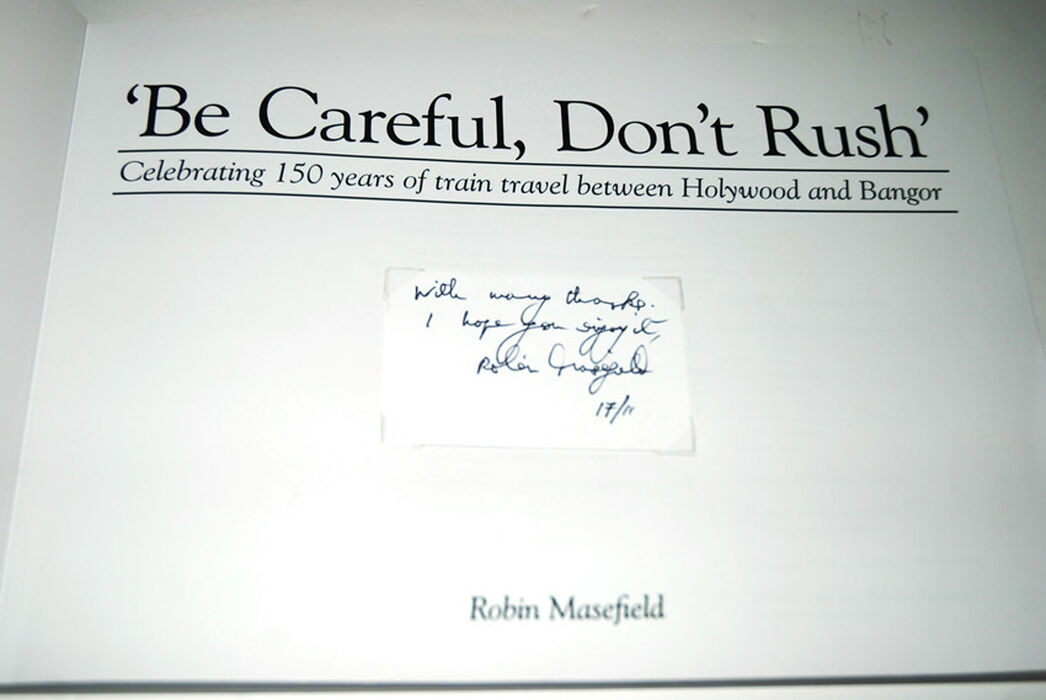 'Be Careful, Don't Rush'
Celebrating 150 years of train travel between Holywood and Bangor
With many thanks.
I hope you enjoy it,
Robin Masefield
17/11
Robin Masefield